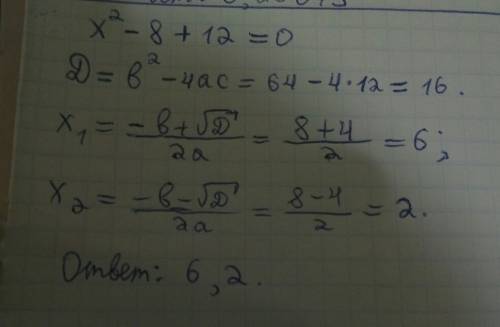 x² - 8 + 12 = 0
D = b² - 4ac = 64 - 4·12 = 16.
x₁ = (-b + √D)/2a = (8 + 4)/2 = 6;
x₂ = (-b - √D)/2a = (8 - 4)/2 = 2.
Ответ: 6, 2.